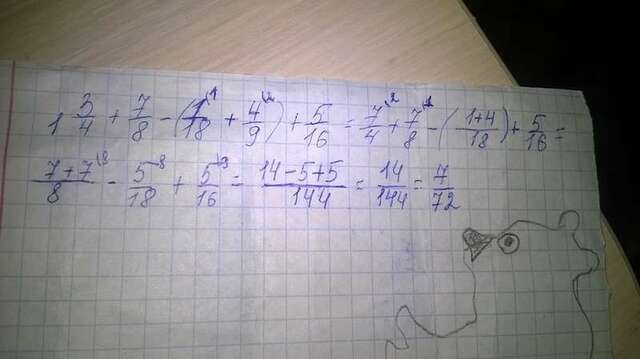 1 3/4 + 7/8 - (1/18 \1 + 4/9 \2) + 5/16 = 7/4 \2 + 7/8 \1 - (1+4/18) + 5/16 =
7+7/8 \18 - 5/18 \8 + 5/16 \9 = 14-5+5/144 = 14/144 = 7/72